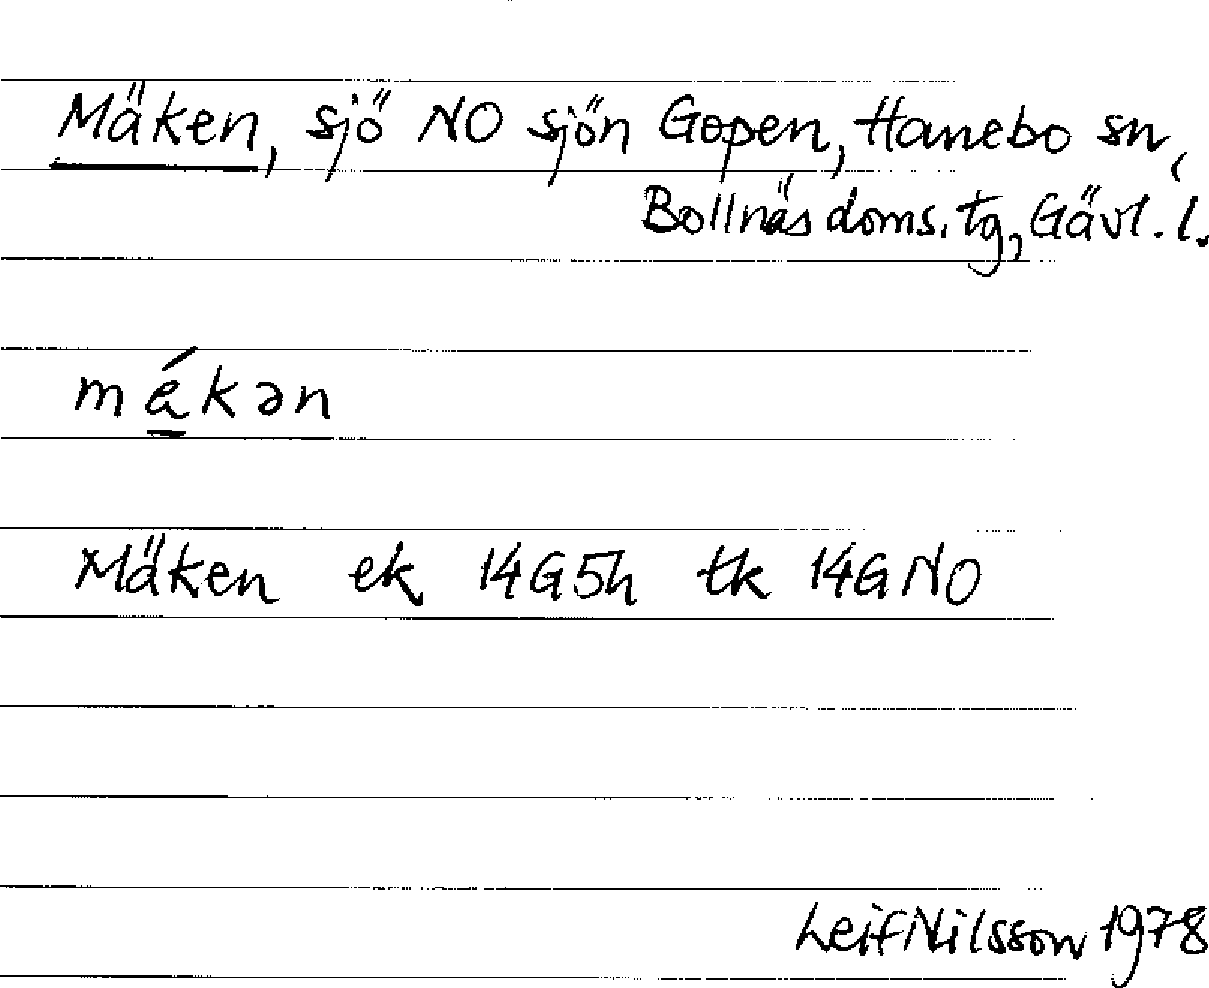 Mäken, sjö NO sjön Gopen, Hanebo sn,
Bollnäs doms. tg, Gävl. l.
má̱kən
Mäken ek 14G5h tk 14GNO
Leif Nilsson 1978